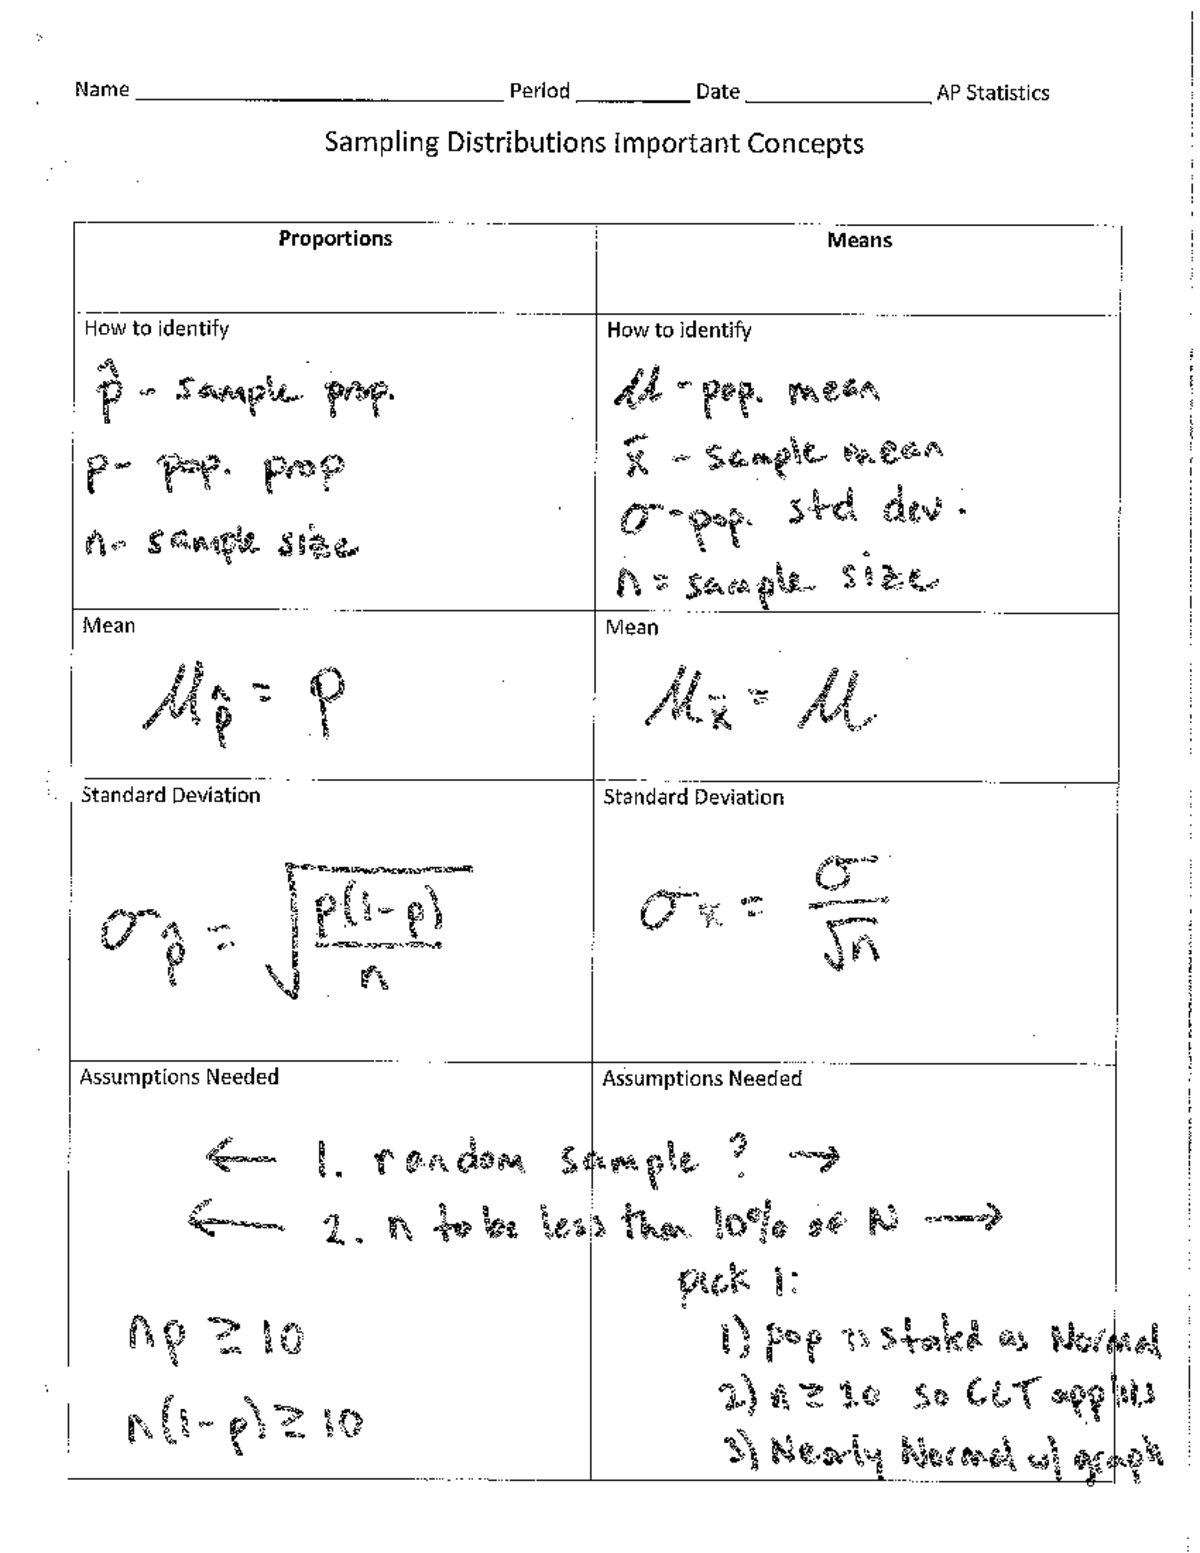 Name Period Date AP Statistics
Sampling Distributions Important Concepts
Proportions
Means
How to identify
p̂ - sample prop.
p - pop. prop
n - sample size
How to identify
μ - pop. mean
x̄ - sample mean
σ - pop. std dev.
n = sample size
Mean
μp̂ = p
Mean
μx̄ = μ
Standard Deviation
σp̂ = √(p(1-p)/n)
Standard Deviation
σx̄ = σ/√n
Assumptions Needed
Assumptions Needed
← 1. random sample ? →
← 2. n to be less than 10% of N →
np ≥ 10
n(1-p) ≥ 10
pick 1:
1) pop is stated as Normal
2) n ≥ so CLT applies
3) Nearly Normal w/ graph